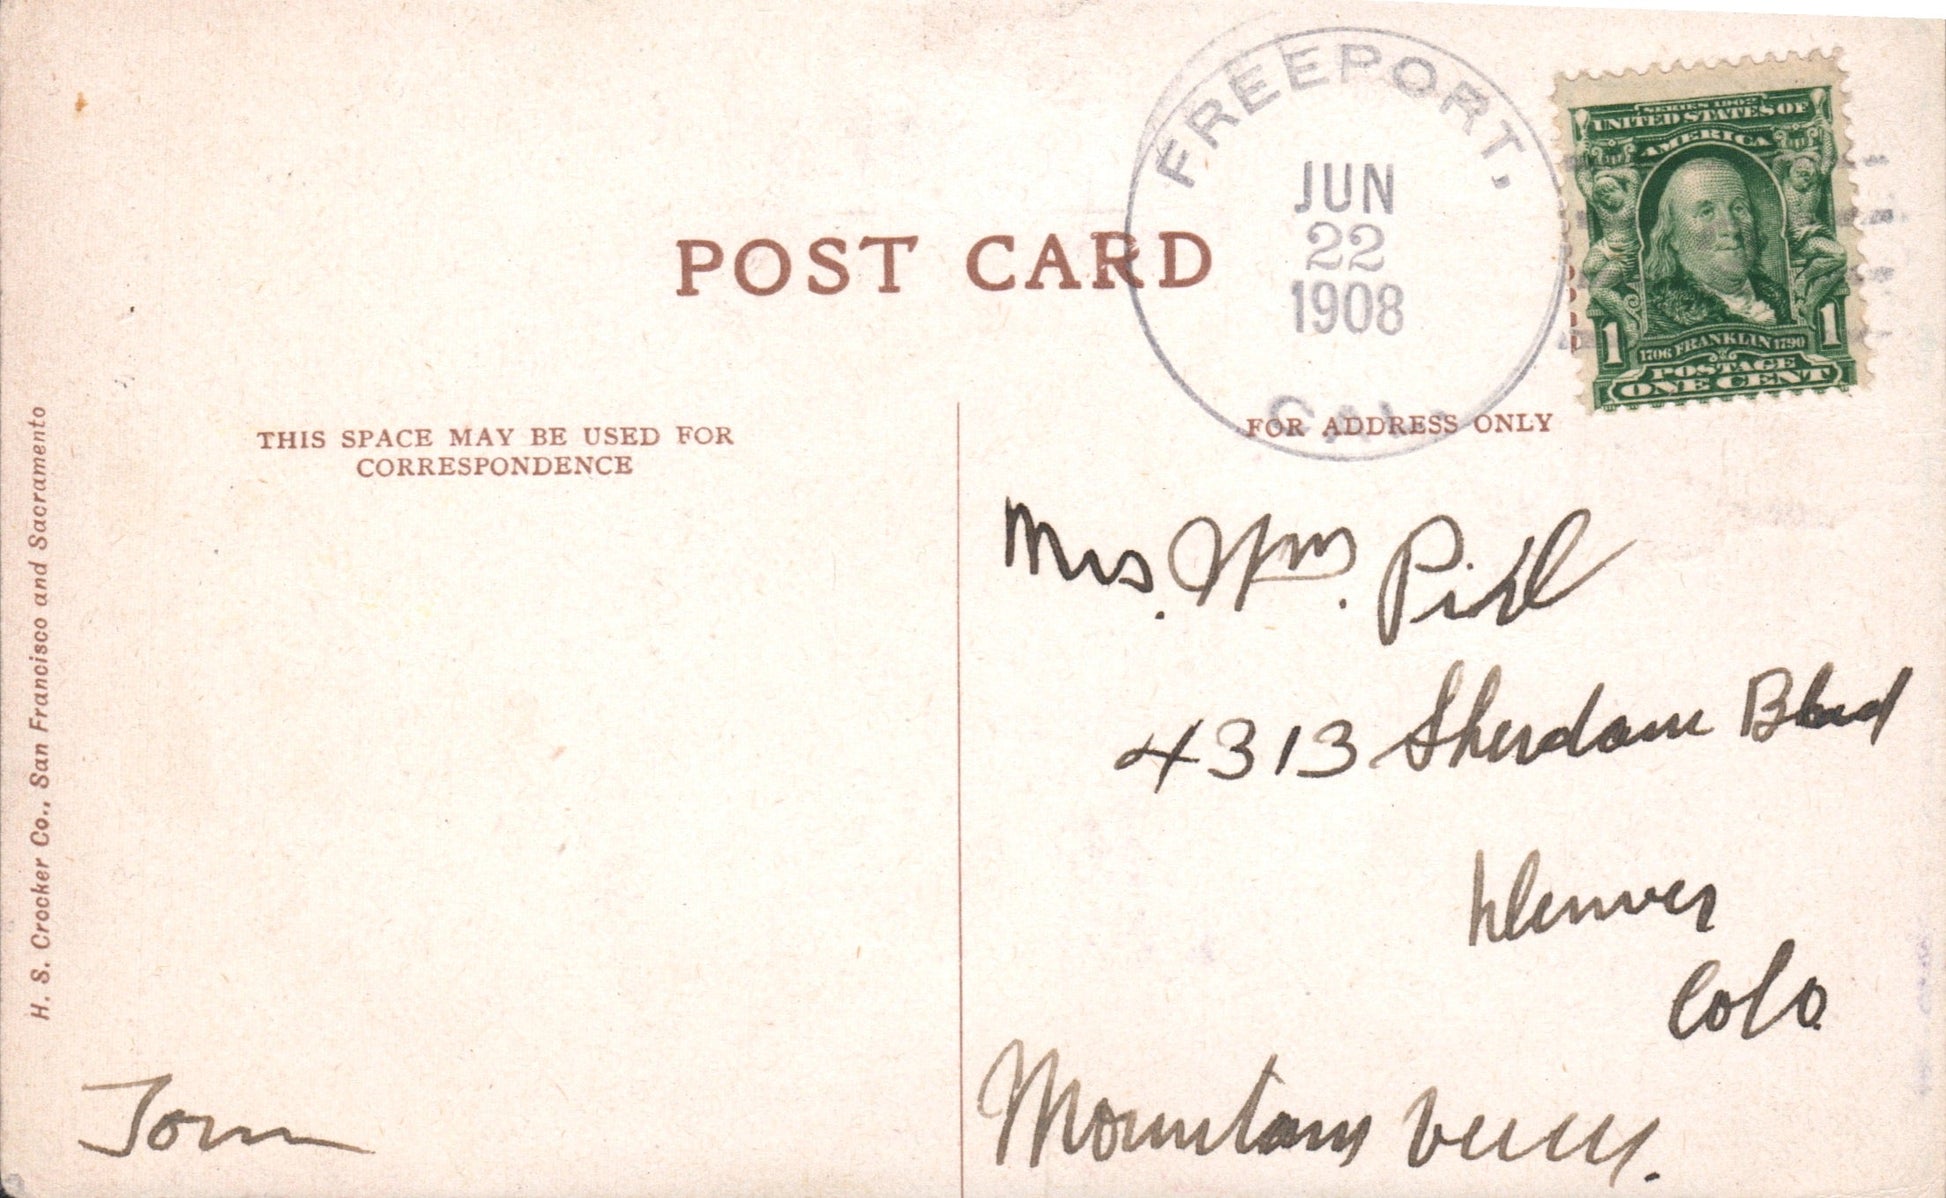 FREEPORT,
JUN
22
1908
CAL.
SERIES 1902
UNITED STATES OF
AMERICA
1 1
1706 FRANKLIN 1790
POSTAGE
ONE CENT
POST CARD
THIS SPACE MAY BE USED FOR
CORRESPONDENCE
FOR ADDRESS ONLY
H. S. Crocker Co., San Francisco and Sacramento
Mrs. Wm. 
4313 Sherdam Blvd
Denver
Colo
Mountain View.
Tom